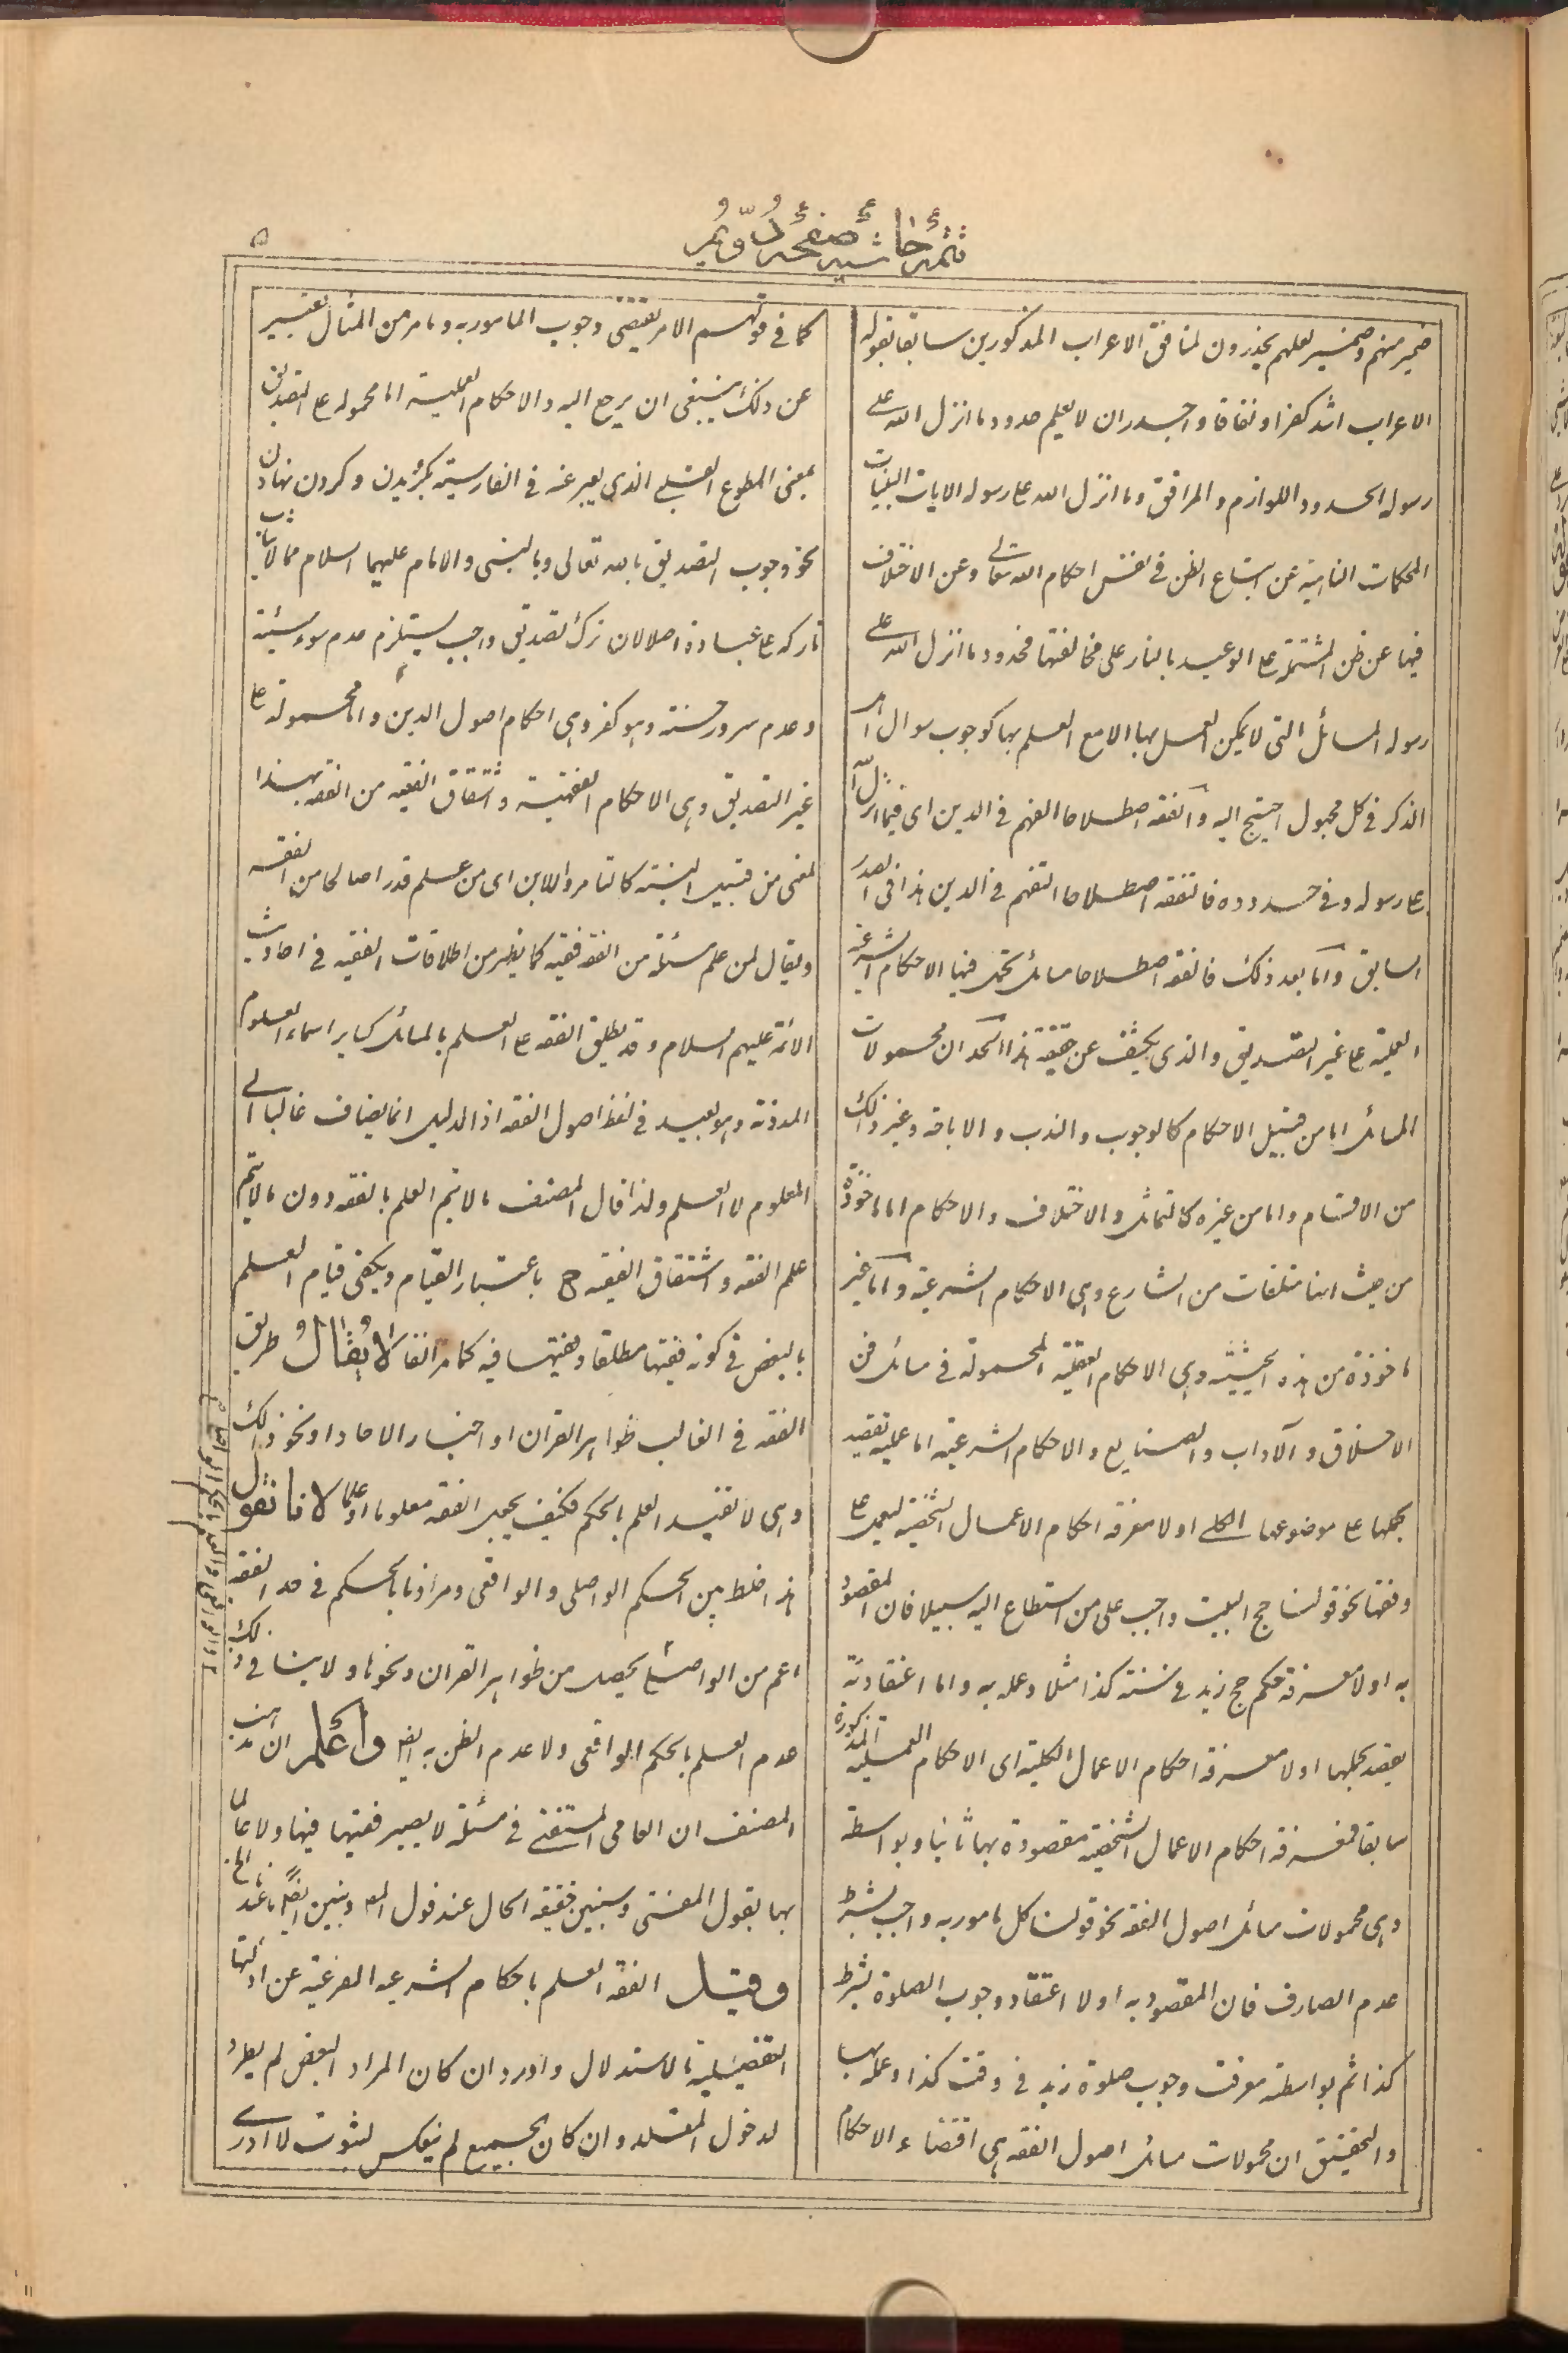 تتمة حاشية صفحة دويم
۵
ضمير منهم وضمير لعلهم يحذرون لمنافق الاعراب المذكورين سابقا بقوله
الاعراب اشد كفرا ونفاقا واجدر ان لا يعلم حدود ما انزل الله على
رسوله الحدود اللوازم والمرافق وما انزل الله على رسوله الايات البينات
المحكمات الناهية عن اتباع الظن في نفس احكام الله تعالى وعن الاختلاف
فيها عن ظن المشتملة على الوعيد بالنار على مخالفتها فحدود ما انزل الله على
رسوله المسائل التى لا يمكن العمل بها الا مع العلم بها كوجوب سوال اهل
الذكر في كل مجهول احتيج اليه والفقه اصطلاحا الفهم في الدين اى فيما انزل الله
على رسوله وفي حدوده فالتفقه اصطلاحا التفهم في الدين هذا في الصدر
السابق واما بعد ذلك فالفقه اصطلاحا مسائل تحمل فيها الاحكام الشرعية
العملية على غير التصديق والذى يكشف عن حقيقة هذا الحد ان محمولات
المسائل اما من قبيل الاحكام كالوجوب والندب والاباحة وغير ذلك
من الاقسام واما من غيره كالتماثل والاختلاف والاحكام اما ماخوذة
من حيث انها متلقات من الشارع وهى الاحكام الشرعية واما غير
ماخوذة من هذه الحيثية وهى الاحكام العقلية المحمولة في مسائل فن
الاخلاق والآداب والصنايع والاحكام الشرعية اما عملية تقصد
بحملها على موضوعها الكلي اولا معرفة احكام الاعمال الشخصية ليعمل على
وفقها نحو قولنا حج البيت واجب على من استطاع اليه سبيلا فان المقصود
به اولا معرفة حكم حج زيد في سنة كذا مثلا وعمله به واما اعتقادية
يقصد بحملها اولا معرفة احكام الاعمال الكلية اى الاحكام العملية المذكورة
سابقا فمعرفة احكام الاعمال الشخصية مقصودة بها ثانيا وبواسطة
وهى محمولات مسائل اصول الفقه نحو قولنا كل مامور به واجب بشرط
عدم الصارف فان المقصود به اولا اعتقاد وجوب الصلوة بشرط
كذا ثم بواسطة معرفت وجوب صلوة زيد في وقت كذا وعمله بها
والتحقيق ان محمولات مسائل اصول الفقه هى اقتضاء الاحكام
كما في قولهم الامر يقتضى وجوب المامور به وما مر من المثال تعبير
عن ذلك ينبغى ان يرجع اليه والاحكام العملية اما محمولة على التصديق
بمعنى المطوع القلبي الذى يعبر عنه في الفارسية بكرويدن وكردن نهادن
نحو وجوب التصديق بالله تعالى وبالنبى والامام عليهما السلام مما لا يثاب
تاركه على عبادة اصلا لان ترك تصديق واجب يستلزم عدم سوء سيئة
وعدم سرور حسنة وهو كفر وهى احكام اصول الدين واما محمولة على
غير التصديق وهى الاحكام الفقهية واشتقاق الفقيه من الفقه بهذا
المعنى من قبيل النسبة كالتامر واللابن اى من علم قدرا صالحا من الفقه
ويقال لمن علم مسئلة من الفقه فقيه كما يظهر من اطلاقات الفقيه في احاديث
الائمة عليهم السلام وقد يطلق الفقه على العلم بالمسائل كساير اسماء العلوم
المدونة وهو بعيد في لفظ اصول الفقه اذ الدليل انما يضاف غالبا الى
المعلوم لا العلم ولذا قال المصنف ما لا يتم العلم بالفقه دون ما لا يتم
علم الفقه واشتقاق الفقيه ح باعتبار القيام ويكفى قيام العلم
بالبعض في كونه فقيها مطلقا وفقيها فيه كما مر انفا لا يقال طريق
الفقه في الغالب ظواهر القران او اخبار الاحاد او نحو ذلك
وهى لا تفيد العلم بالحكم فكيف يصير الفقه معلوما او علما لانا نقول
هذا خلط بين الحكم الواصلى والواقعى ومرادنا بالحكم في حد الفقه
اعم من الواصلى يحصل من ظواهر القران ونحوها ولا ينافى ذلك
عدم العلم بالحكم الواقعى ولا عدم الظن به ايضا واعلم ان مذهب
المصنف ان العامى المستفتى في مسئلة لا يصير فقيها فيها ولا عالما
بها بقول المفتى وسنبين حقيقة الحال عند قول المص
وقيل الفقه العلم باحكام الشرعية الفرعية عن ادلتها
التفصيلية بالاستدلال واورد ان كان المراد البعض لم يطرد
لدخول المقلد وان كان الجميع لم ينعكس لثبوت لا ادرى